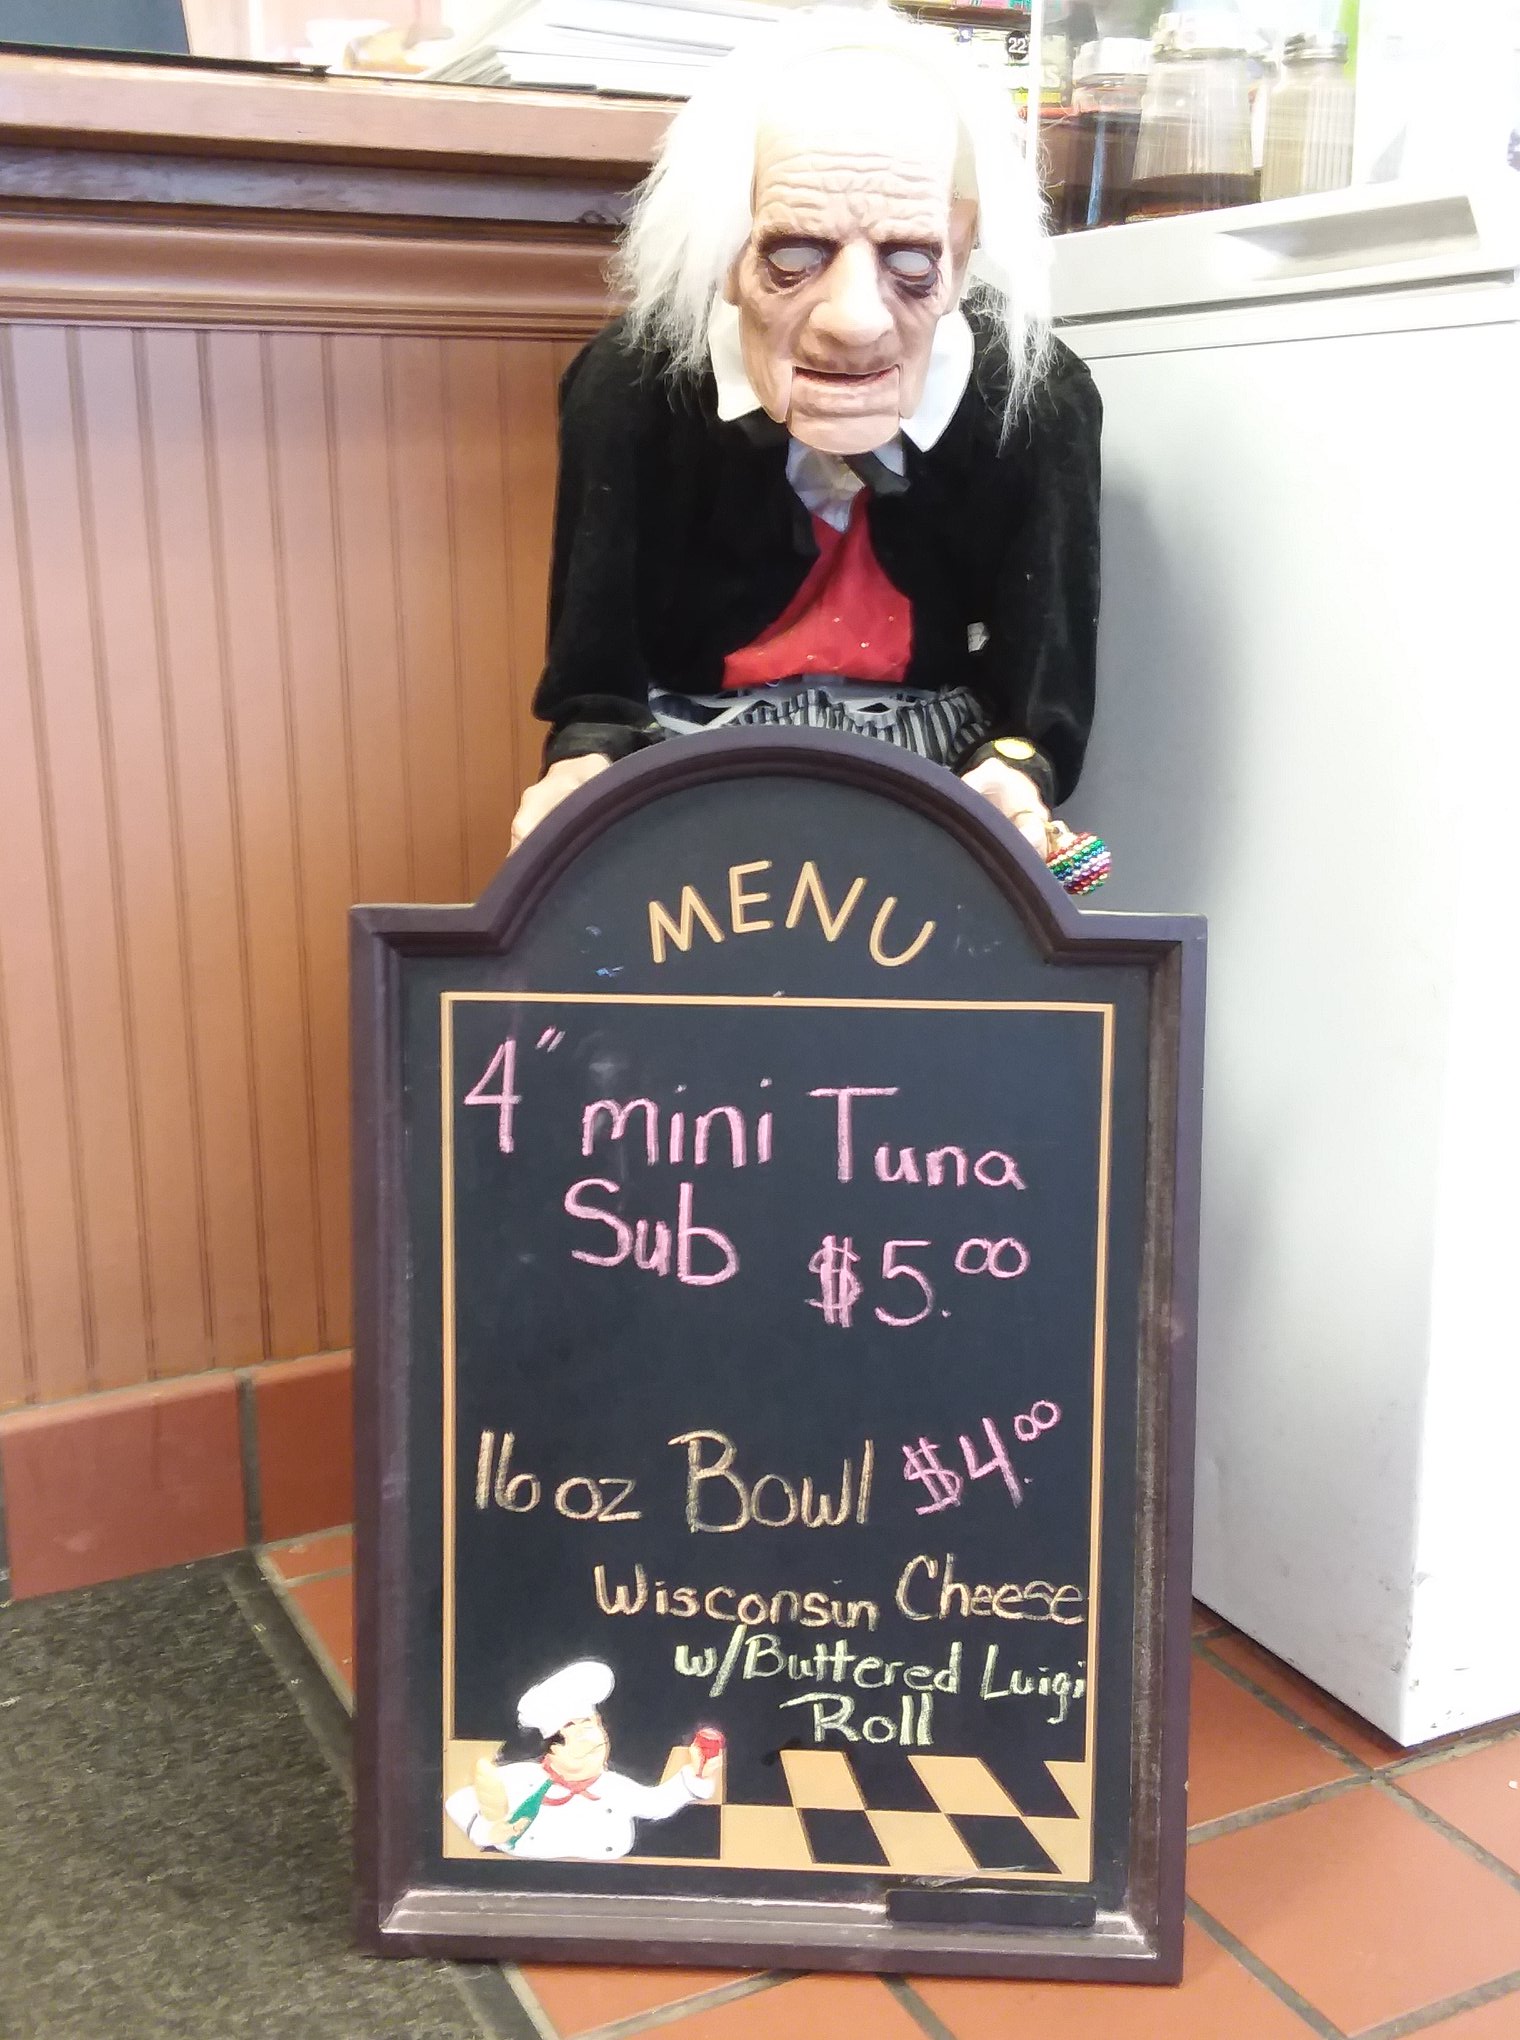 22
MENU
4" mini Tuna
Sub $5.00
16 oz Bowl $4.00
Wisconsin Cheese
w/Buttered Luigi
Roll